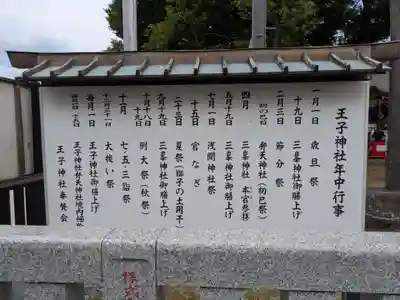 王子神社年中行事
一月一日 歳旦祭
十九日 三峯神社御膳上げ
二月三日 節分祭
初の巳日 弁天神社（初巳祭）
四月 三峯神社 本宮参拝
五月十九日 三峯神社御膳上げ
七月一日 浅間神社祭
十五日 宮なぎ
二十三日 夏祭（獅子の土用干）
九月十九日 三峯神社御膳上げ
十月十八日 十九日 例大祭（秋祭）
十一月 七・五・三詣祭
十二月三十一日 大祓い祭
毎月一日 王子神社御膳上げ
王子神社弁天神社境内掃除
王子神社奉賛会